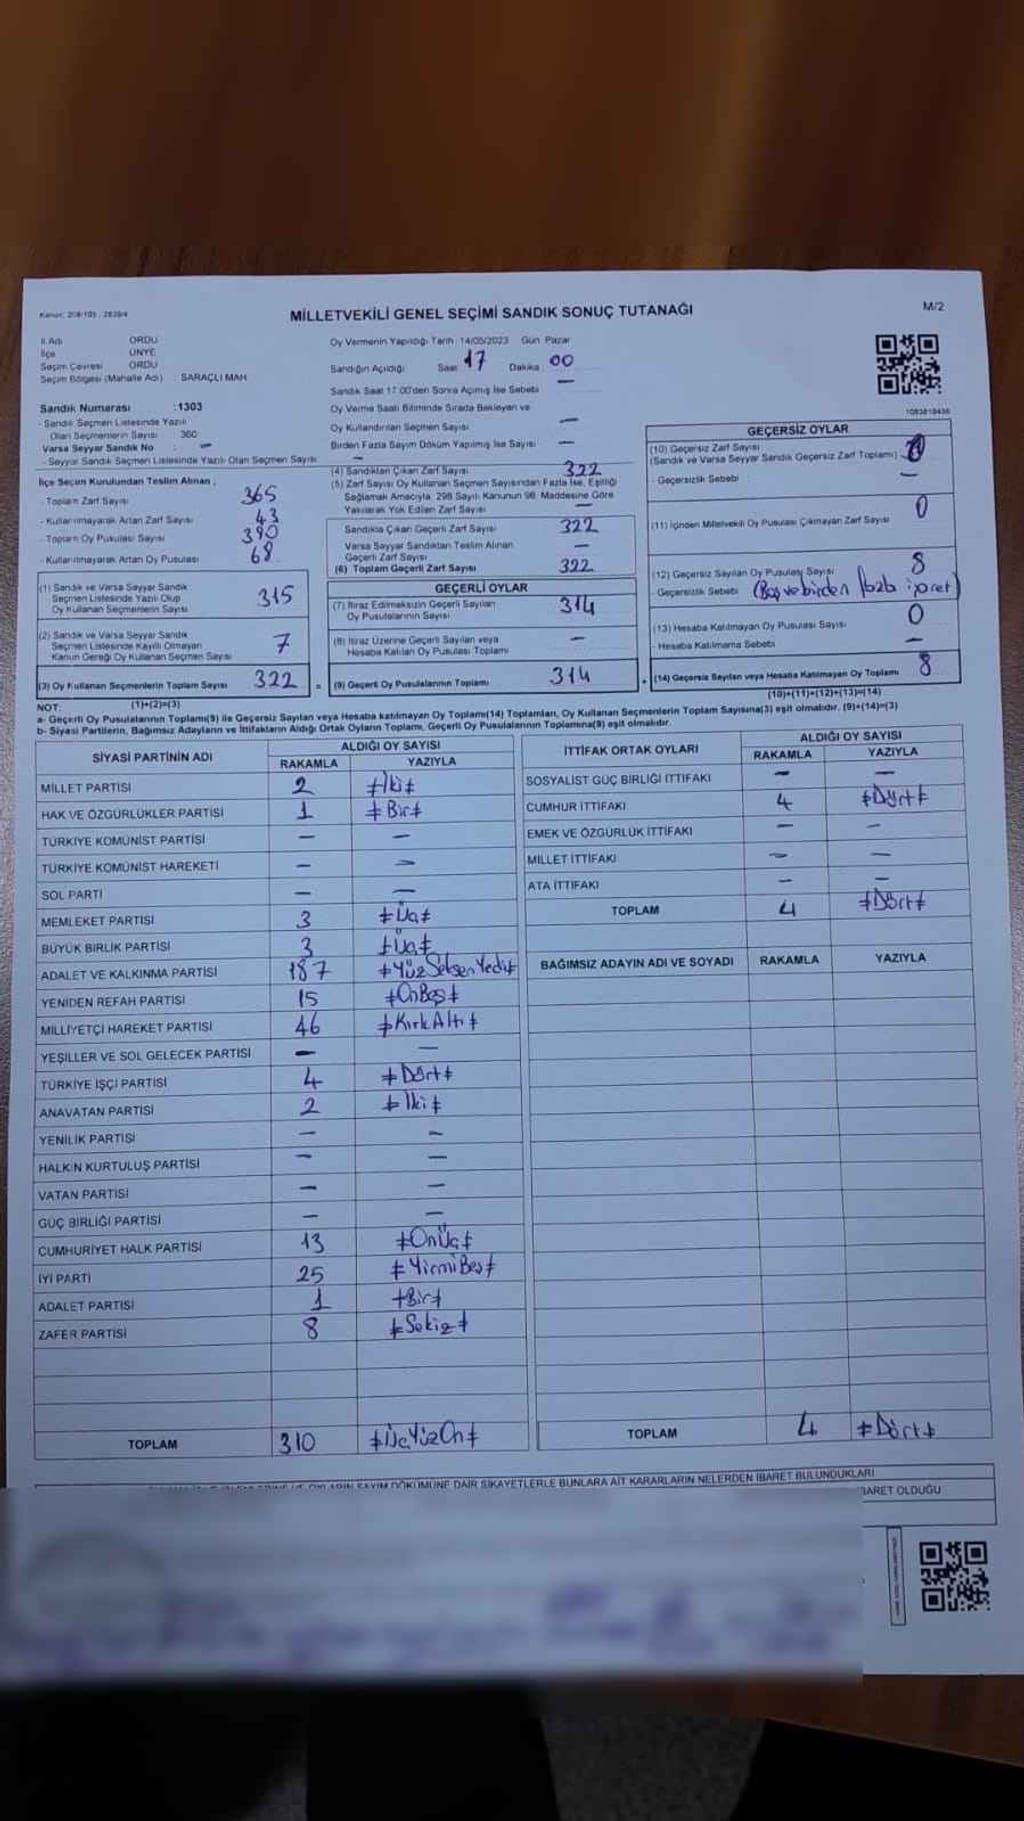 MİLLETVEKİLİ GENEL SEÇİMİ SANDIK SONUÇ TUTANAĞI
M/2
İl Adı ORDU
İlçe ÜNYE
Seçim Çevresi ORDU
Seçim Bölgesi (Mahalle Adı) : SARAÇLI MAH.
Sandık Numarası : 1303
- Sandık Seçmen Listesinde Yazılı
Olan Seçmenlerin Sayısı 360
Varsa Seyyar Sandık No : –
- Seyyar Sandık Seçmen Listesinde Yazılı Olan Seçmen Sayısı –
İlçe Seçim Kurulundan Teslim Alınan ;
- Toplam Zarf Sayısı 365
- Kullanılmayarak Artan Zarf Sayısı 43
- Toplam Oy Pusulası Sayısı 390
- Kullanılmayarak Artan Oy Pusulası 68
(1) Sandık ve Varsa Seyyar Sandık
Seçmen Listesinde Yazılı Olup
Oy Kullanan Seçmenlerin Sayısı 315
(2) Sandık ve Varsa Seyyar Sandık
Seçmen Listesinde Kayıtlı Olmayan
Kanun Gereği Oy Kullanan Seçmen Sayısı 7
(3) Oy Kullanan Seçmenlerin Toplam Sayısı 322
(1)+(2)=(3)
Oy Vermenin Yapıldığı Tarih : 14/05/2023 Gün Pazar
Sandığın Açıldığı Saat 17 Dakika 00
Sandık Saat 17:00'den Sonra Açılmış İse Sebebi –
Oy Verme Saati Bitiminde Sırada Bekleyen ve
Oy Kullandırılan Seçmen Sayısı –
Birden Fazla Sayım Döküm Yapılmış İse Sayısı –
(4) Sandıktan Çıkan Zarf Sayısı 322
(5) Zarf Sayısı Oy Kullanan Seçmen Sayısından Fazla İse, Eşitliği
Sağlamak Amacıyla, 298 Sayılı Kanunun 98. Maddesine Göre
Yakılarak Yok Edilen Zarf Sayısı –
Sandıkta Çıkan Geçerli Zarf Sayısı 322
Varsa Seyyar Sandıktan Teslim Alınan
Geçerli Zarf Sayısı –
(6) Toplam Geçerli Zarf Sayısı 322
GEÇERLİ OYLAR
(7) İtiraz Edilmeksizin Geçerli Sayılan
Oy Pusulalarının Sayısı 314
(8) İtiraz Üzerine Geçerli Sayılan veya
Hesaba Katılan Oy Pusulası Toplamı –
(9) Geçerli Oy Pusulalarının Toplamı 314
1083818436
GEÇERSİZ OYLAR
(10) Geçersiz Zarf Sayısı
(Sandık ve Varsa Seyyar Sandık Geçersiz Zarf Toplamı)
- Geçersizlik Sebebi –
(11) İçinden Milletvekili Oy Pusulası Çıkmayan Zarf Sayısı 0
(12) Geçersiz Sayılan Oy Pusulası Sayısı 8
Geçersizlik Sebebi (Boş ve birden fazla işaret)
(13) Hesaba Katılmayan Oy Pusulası Sayısı 0
- Hesaba Katılmama Sebebi –
(14) Geçersiz Sayılan veya Hesaba Katılmayan Oy Toplamı 8
(10)+(11)+(12)+(13)=(14)
NOT:
a- Geçerli Oy Pusulalarının Toplamı(9) ile Geçersiz Sayılan veya Hesaba katılmayan Oy Toplamı(14) Toplamları, Oy Kullanan Seçmenlerin Toplam Sayısına(3) eşit olmalıdır. (9)+(14)=(3)
b- Siyasi Partilerin, Bağımsız Adayların ve İttifakların Aldığı Oyların Toplamı, Geçerli Oy Pusulalarının Toplamına(9) eşit olmalıdır.
SİYASİ PARTİNİN ADI ALDIĞI OY SAYISI
RAKAMLA YAZIYLA
MİLLET PARTİSİ 2 #İki#
HAK VE ÖZGÜRLÜKLER PARTİSİ 1 #Bir#
TÜRKİYE KOMÜNİST PARTİSİ – –
TÜRKİYE KOMÜNİST HAREKETİ – –
SOL PARTİ – –
MEMLEKET PARTİSİ 3 #Üç#
BÜYÜK BİRLİK PARTİSİ 3 #Üç#
ADALET VE KALKINMA PARTİSİ 187 #YüzSeksenYedi#
YENİDEN REFAH PARTİSİ 15 #OnBeş#
MİLLİYETÇİ HAREKET PARTİSİ 46 #KırkAltı#
YEŞİLLER VE SOL GELECEK PARTİSİ – –
TÜRKİYE İŞÇİ PARTİSİ 4 #Dört#
ANAVATAN PARTİSİ 2 #İki#
YENİLİK PARTİSİ – –
HALKIN KURTULUŞ PARTİSİ – –
VATAN PARTİSİ – –
GÜÇ BİRLİĞİ PARTİSİ – –
CUMHURİYET HALK PARTİSİ 13 #OnÜç#
İYİ PARTİ 25 #YirmiBeş#
ADALET PARTİSİ 1 #Bir#
ZAFER PARTİSİ 8 #Sekiz#
TOPLAM 310 #ÜçYüzOn#
İTTİFAK ORTAK OYLARI ALDIĞI OY SAYISI
RAKAMLA YAZIYLA
SOSYALİST GÜÇ BİRLİĞİ İTTİFAKI – –
CUMHUR İTTİFAKI 4 #Dört#
EMEK VE ÖZGÜRLÜK İTTİFAKI – –
MİLLET İTTİFAKI – –
ATA İTTİFAKI – –
TOPLAM 4 #Dört#
BAĞIMSIZ ADAYIN ADI VE SOYADI RAKAMLA YAZIYLA
TOPLAM 4 #Dört#
SAYIM DÖKÜMÜNE DAİR ŞİKAYETLERLE BUNLARA AİT KARARLARIN NELERDEN İBARET BULUNDUKLARI
OLDUĞU